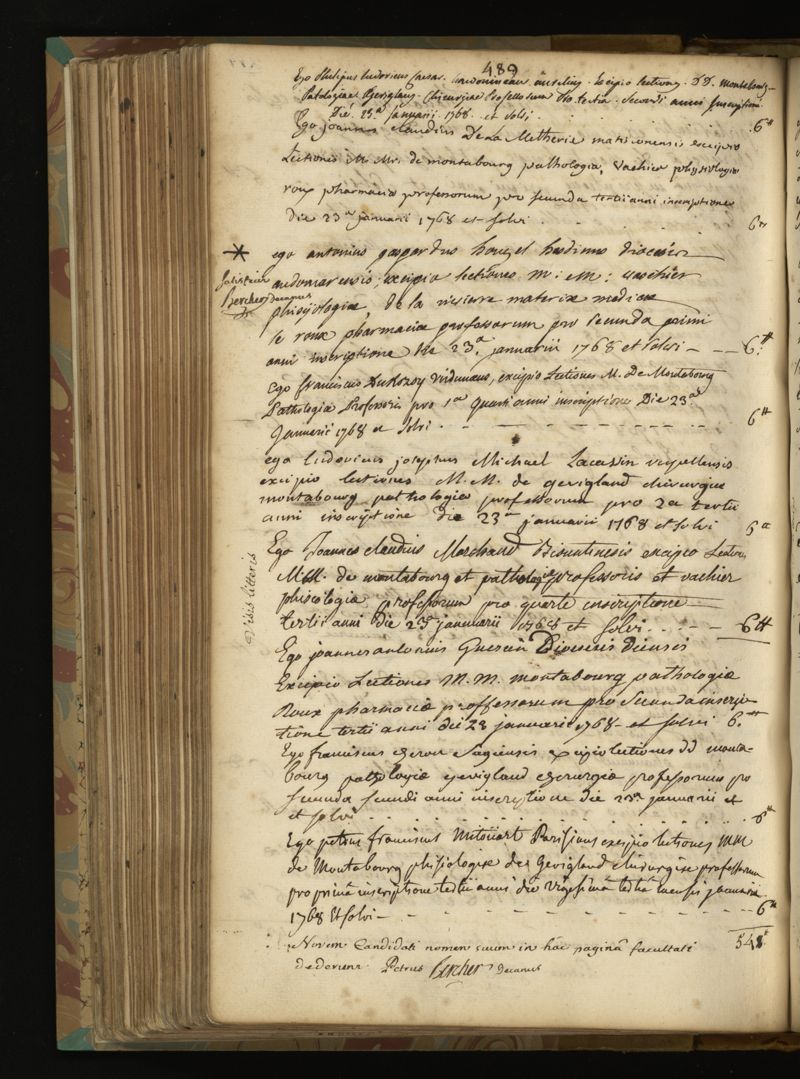 489
Ego Philipus ludovicus Caesar. aurelius. excipio lectiones. DD. Montabourg
Pathologiae Gevigland. Chirurgiae Professorum Pro tertia. Secundi anni Inscriptione
Die. 23.a Januarii. 1768. et Solvi. 6tt
Ego joannes claudius De La Metherie matisconensis excipio
Lectiones M. Mr. de montabourg pathologia, Vachier physiologia
roux pharmacia professorum pro secunda tertii anni inscriptione
die 23a januarii 1768 et solvi 6tt
* ego antonius gaspardus houzel hesdinus diocesis
audomarensis, excipio lectiones m: m: vachier
phisiologiae, de la riviere materiae medicae
le roux pharmaciae professorum pro secunda primi
anni inscriptione die 23.a januarii 1768 et solvi - - - 6.tt
solvit
Bercher Decanus
Ego franciscus Virdunaeus, excipio Lectiones M. De Montabourg
Pathologia Professoris pro 1a quarti anni inscriptione Die 23.a
Januarii 1768 et solvi. 6tt
ego ludovicus josephus Michael Lacassin
excipio lectiones M. M. de gevigland chirurgiae
montabourg pathologiae professorum pro 2a tertii
anni inscriptione die 23a januarii 1768 et solvi 6tt
Ego Joannes claudius Marchand Bisuntinensis excipio Lectiones
MM. de montabourg et pathologiae professoris et vachier
phisiologia professorum pro quarte inscriptione
tertii anni die 23a januarii 1768 et solvi . . . . . 6tt
Visis litteris
Ego joannes antonius Diocesis diensis
Excipio Lectiones M. M. montabourg pathologiae
Roux pharmaciae proffessorum pro Secunda inscrip-
tione tertii anni die 23 januarii 1768 et solvi 6.tt
Ego franciscus Sagiensis excipio lectiones dd monta-
bourg pathologiae gevigland chirurgiae professorum pro
secunda secundi anni inscriptione die 23a januarii et
et solvi 6tt
Ego petrus franciscus Mitoüart Parisinus excipio lectiones MM
de Montabourg phisiologiae de Gevigland chirurgiae professorum
pro primâ inscriptione tertii anni die vigesimâ tertiâ mensis januarii
1768 Et solvi - 6tt
Novem Candidati nomen suum in hâc paginâ facultati 54tt
dederunt Petrus Bercher Decanus